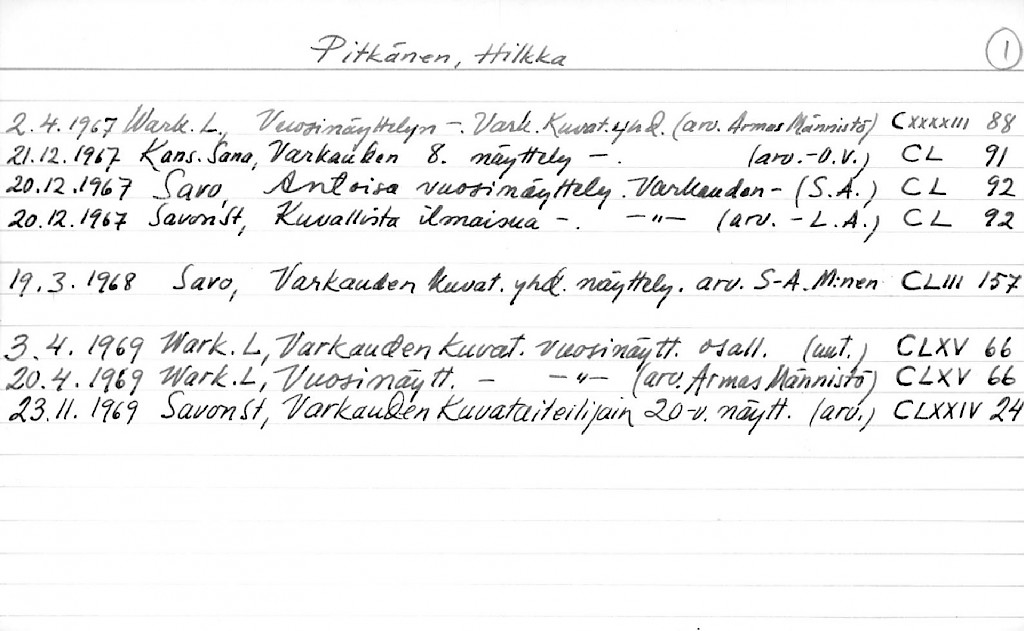 Pitkänen, Hilkka 1
2.4.1967 Wark. L., Vuosinäyttelyn -. Vark. Kuvat. yhd. (arv. Armas Männistö) CXXXXIII 88
21.12.1967 Kans. Sana, Varkauden 8. näyttely -. (arv.-O.V.) CL 91
20.12.1967 Savo, Antoisa vuosinäyttely. Varkauden - (S.A.) CL 92
20.12.1967 SavonSt, Kuvallista ilmaisua -. -"- (arv. -L.A.) CL 92
19.3.1968 Savo, Varkauden kuvat. yhd. näyttely. arv. S-A. M:nen CLIII 157
3.4.1969 Wark. L, Varkauden Kuvat. vuosinäytt. osall. (uut.) CLXV 66
20.4.1969 Wark. L, Vuosinäytt. - -"- (arv. Armas Männistö) CLXV 66
23.11.1969 SavonSt, Varkauden Kuvataiteilijain 20-v. näytt. (arv.) CLXXIV 24